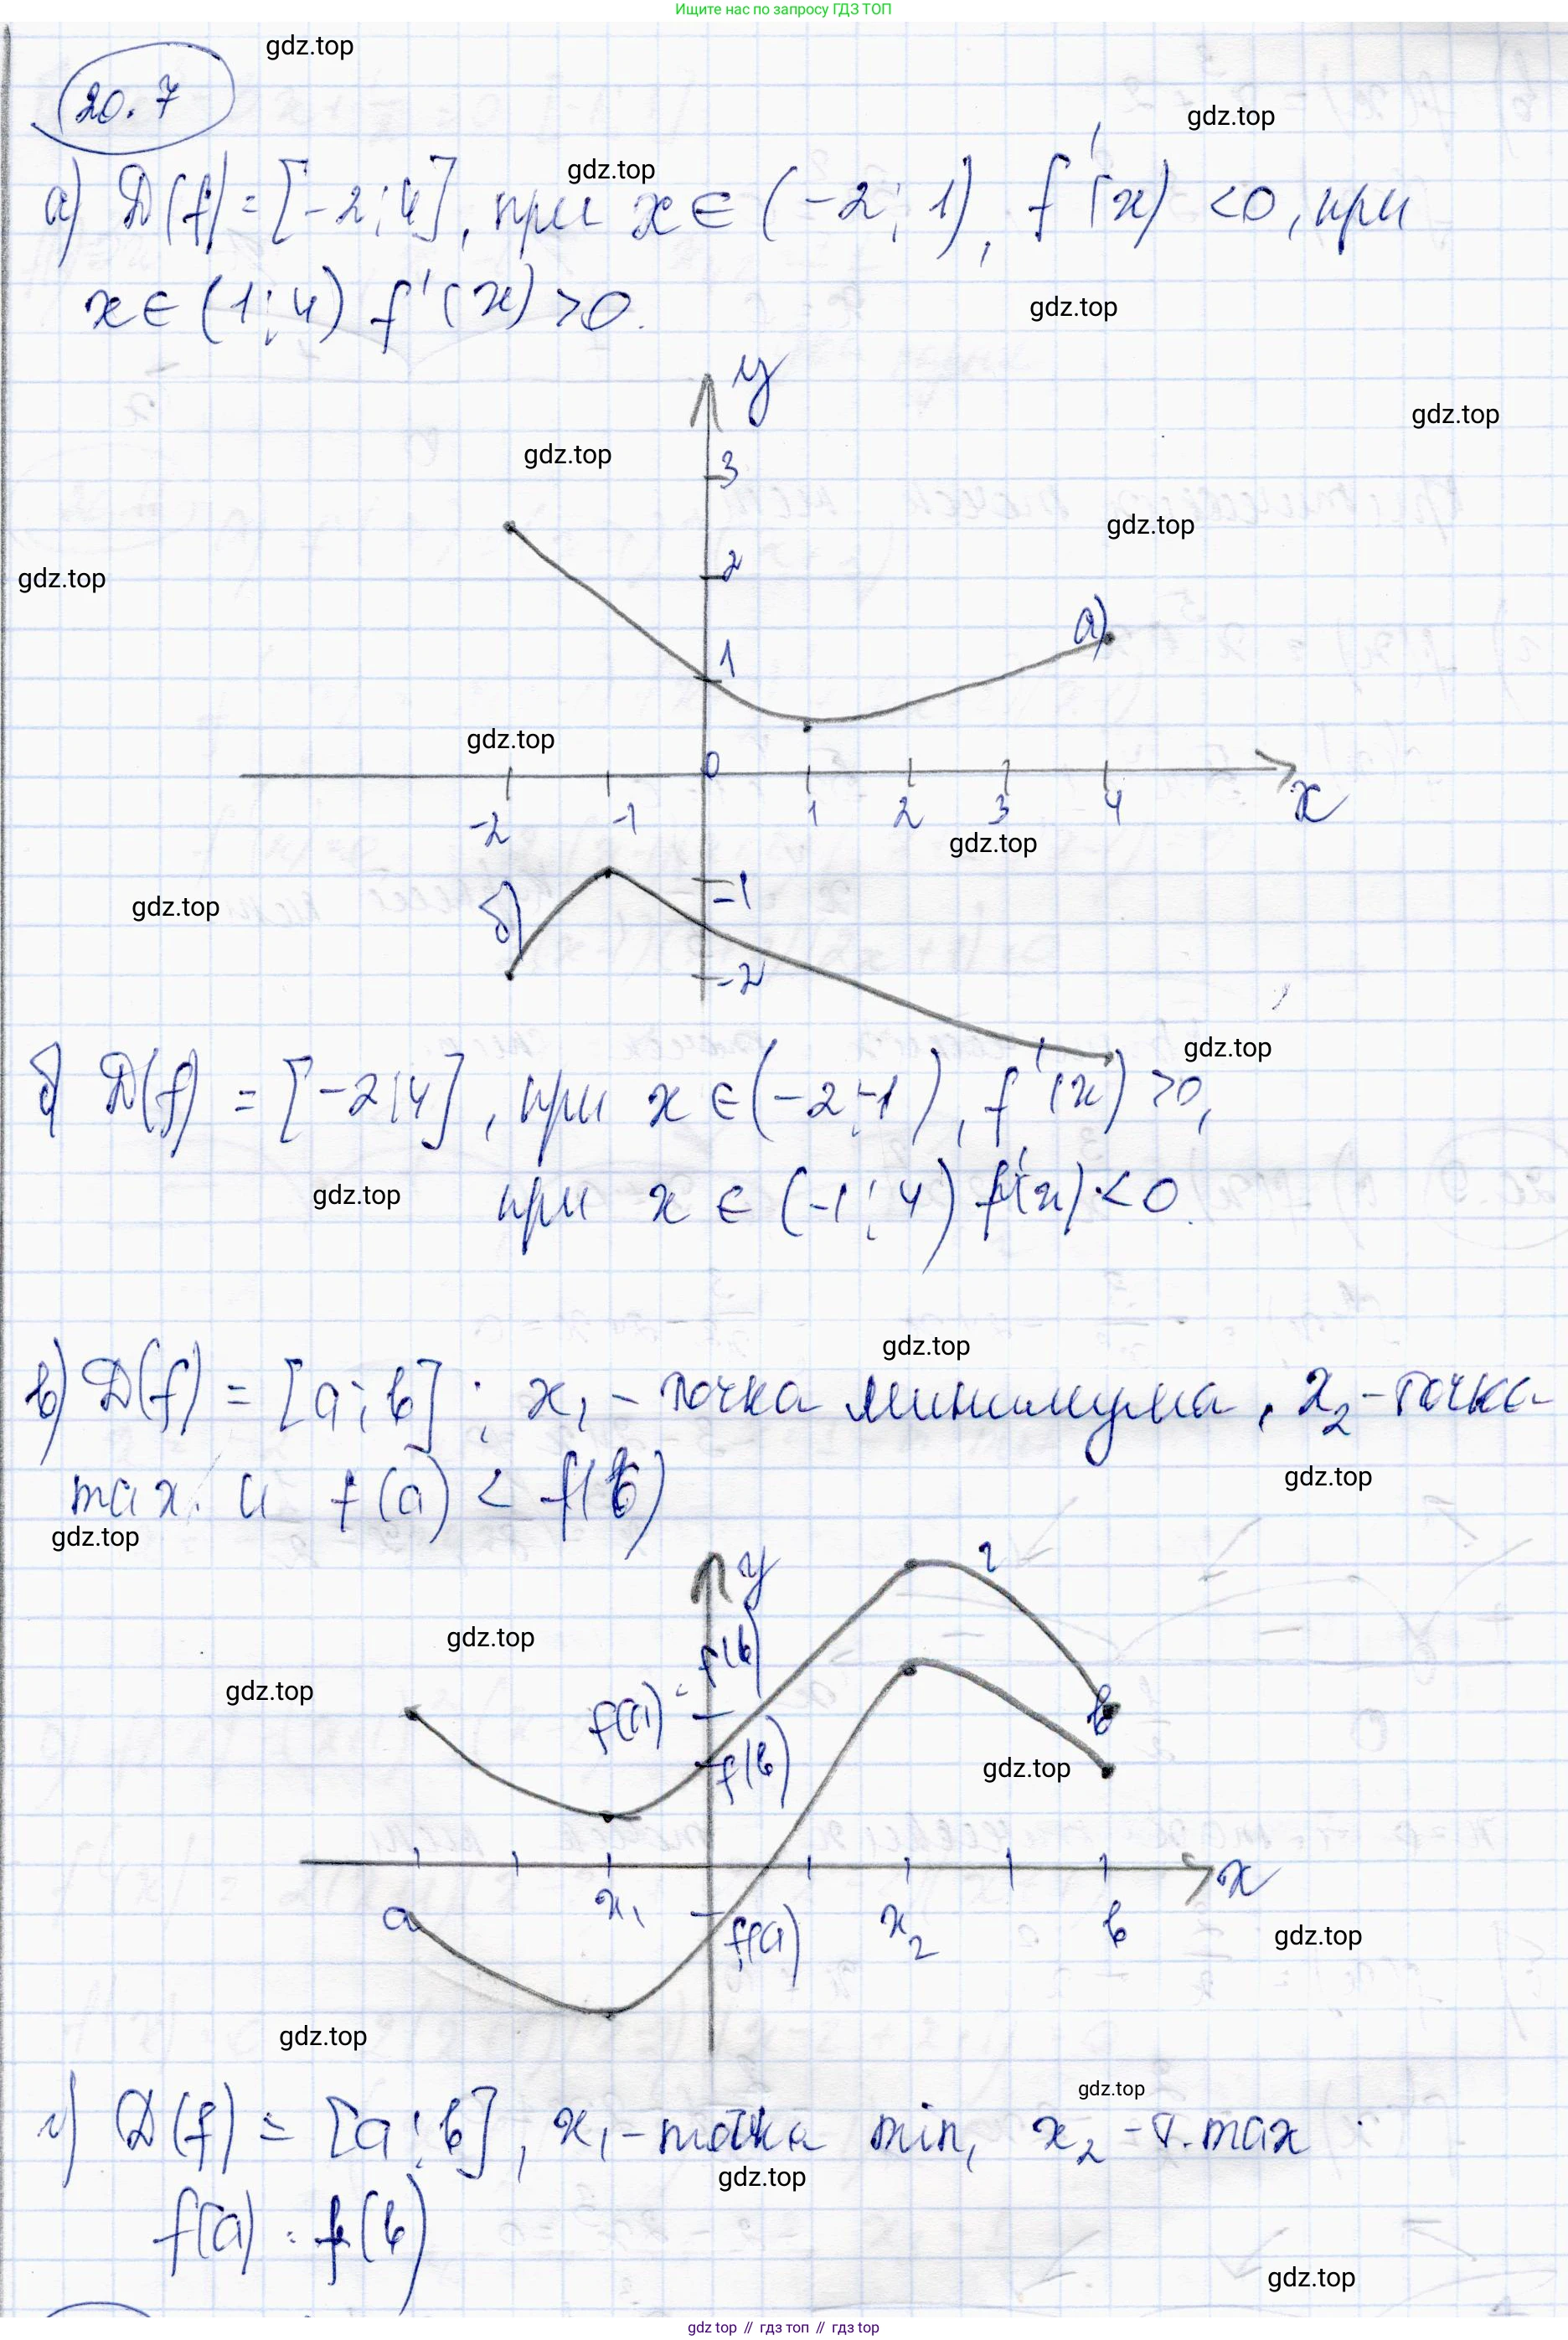 Ищите нас по запросу ГДЗ ТОП
gdz.top
20.7
gdz.top
gdz.top
а) D(f)=[-2;4], при x∈(-2;1), f'(x)<0, при
x∈(1;4) f'(x)>0.
gdz.top
y
gdz.top
gdz.top
3
gdz.top
gdz.top
2
а)
1
gdz.top
0
-2 -1 1 2 3 4 x
gdz.top
gdz.top
б)
-1
-2
gdz.top
б) D(f) = [-2;4], при x∈(-2;-1), f'(x)>0,
gdz.top
при x∈(-1;4) f'(x)<0.
gdz.top
в) D(f) = [a;b]; x₁ - точка минимума, x₂ - точка
gdz.top
max. и f(a) < f(b)
gdz.top
y
г
gdz.top
f(b)
gdz.top
f(a)
в
f(b)
gdz.top
x
a x₁ x₂ b
f(a)
gdz.top
gdz.top
gdz.top
г) D(f) = [a;b], x₁ - точка min, x₂ - т. max
gdz.top
f(a) = f(b)
gdz.top
gdz top // гдз топ // гдз top